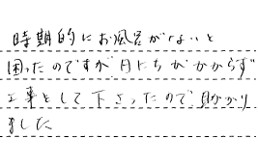 時期的にお風呂がないと
困ったのですが、日にちがかからず
工事をして下さったので助かり
ました